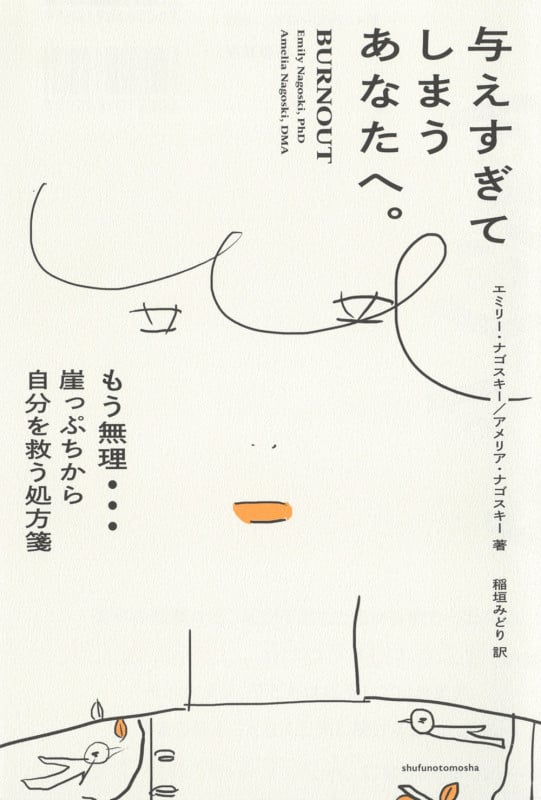 与えすぎて
しまう
あなたへ。
BURNOUT
Emily Nagoski, PhD
Amelia Nagoski, DMA
エミリー・ナゴスキー/アメリア・ナゴスキー 著
稲垣みどり 訳
もう無理・・・
崖っぷちから
自分を救う処方箋
shufunotomosha